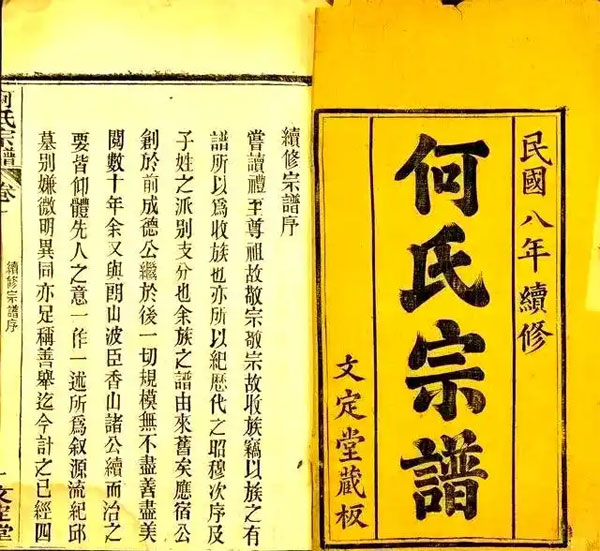 民國八年續修
何氏宗譜
文定堂藏板
續修宗譜序
嘗讀禮至尊祖故敬宗敬宗故收族竊以族之有
譜所以爲收族也亦所以紀歷代之昭穆次序及
子姓之派別支分也余族之譜由來舊矣應宿公
創於前成德公繼於後一切規模無不盡善盡美
閱數十年余又與朗山波臣香山諸公續而治之
要皆仰體先人之意一作一述所爲叙源流紀邱
墓別嫌微明異同亦足稱善舉迄今計之已經四
何氏宗譜
卷
續修宗譜序
文定堂